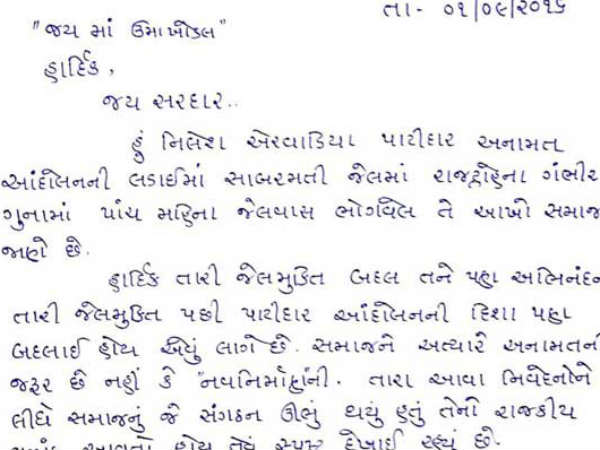 તા- ૦૧/૦૯/૨૦૧૬
"જય માં ઉમાખોડલ"
હાર્દિક,
જય સરદાર..
હું નિલેશ એરવાડિયા પાટીદાર અનામત
આંદોલનની લડાઈમાં સાબરમતી જેલમાં રાજદ્રોહના ગંભીર
ગુનામાં પાંચ મહિના જેલવાસ ભોગવેલ તે આખો સમાજ
જાણે છે.
હાર્દિક તારી જેલમુક્તિ બદલ તને પણ અભિનંદન
તારી જેલમુક્તિ પછી પાટીદાર આંદોલનની દિશા પણ
બદલાઈ હોય એવું લાગે છે. સમાજને અત્યારે અનામતની
જરૂર છે નહીં કે "નવનિર્માણની. તારા આવા નિવેદનોને
લીધે સમાજનું જે સંગઠન ઊભું થયું હતું તેની રાજકીય
હોય તેવું સ્પષ્ટ દેખાઈ રહ્યું છે.